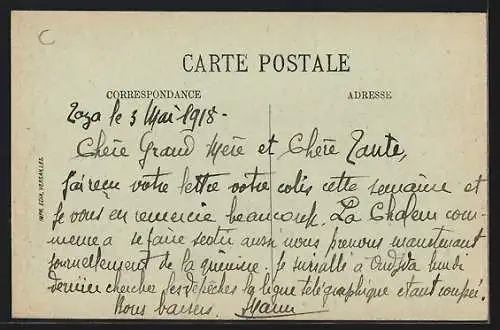 C
CARTE POSTALE
CORRESPONDANCE
ADRESSE
IMP. EDIA, VERSAILLES
Taza le 3 Mai 1918-
Chère Grand Mère et Chère Tante,
J'ai reçu votre lettre votre colis cette semaine et
je vous en remercie beaucoup. La Chaleur com-
mence a se faire sentir aussi nous prenons maintenant
journellement de la quinine. Je suis allé à Oudjda lundi
dernier chercher les dépêches la ligne télégraphique étant coupée.
Bons baisers.